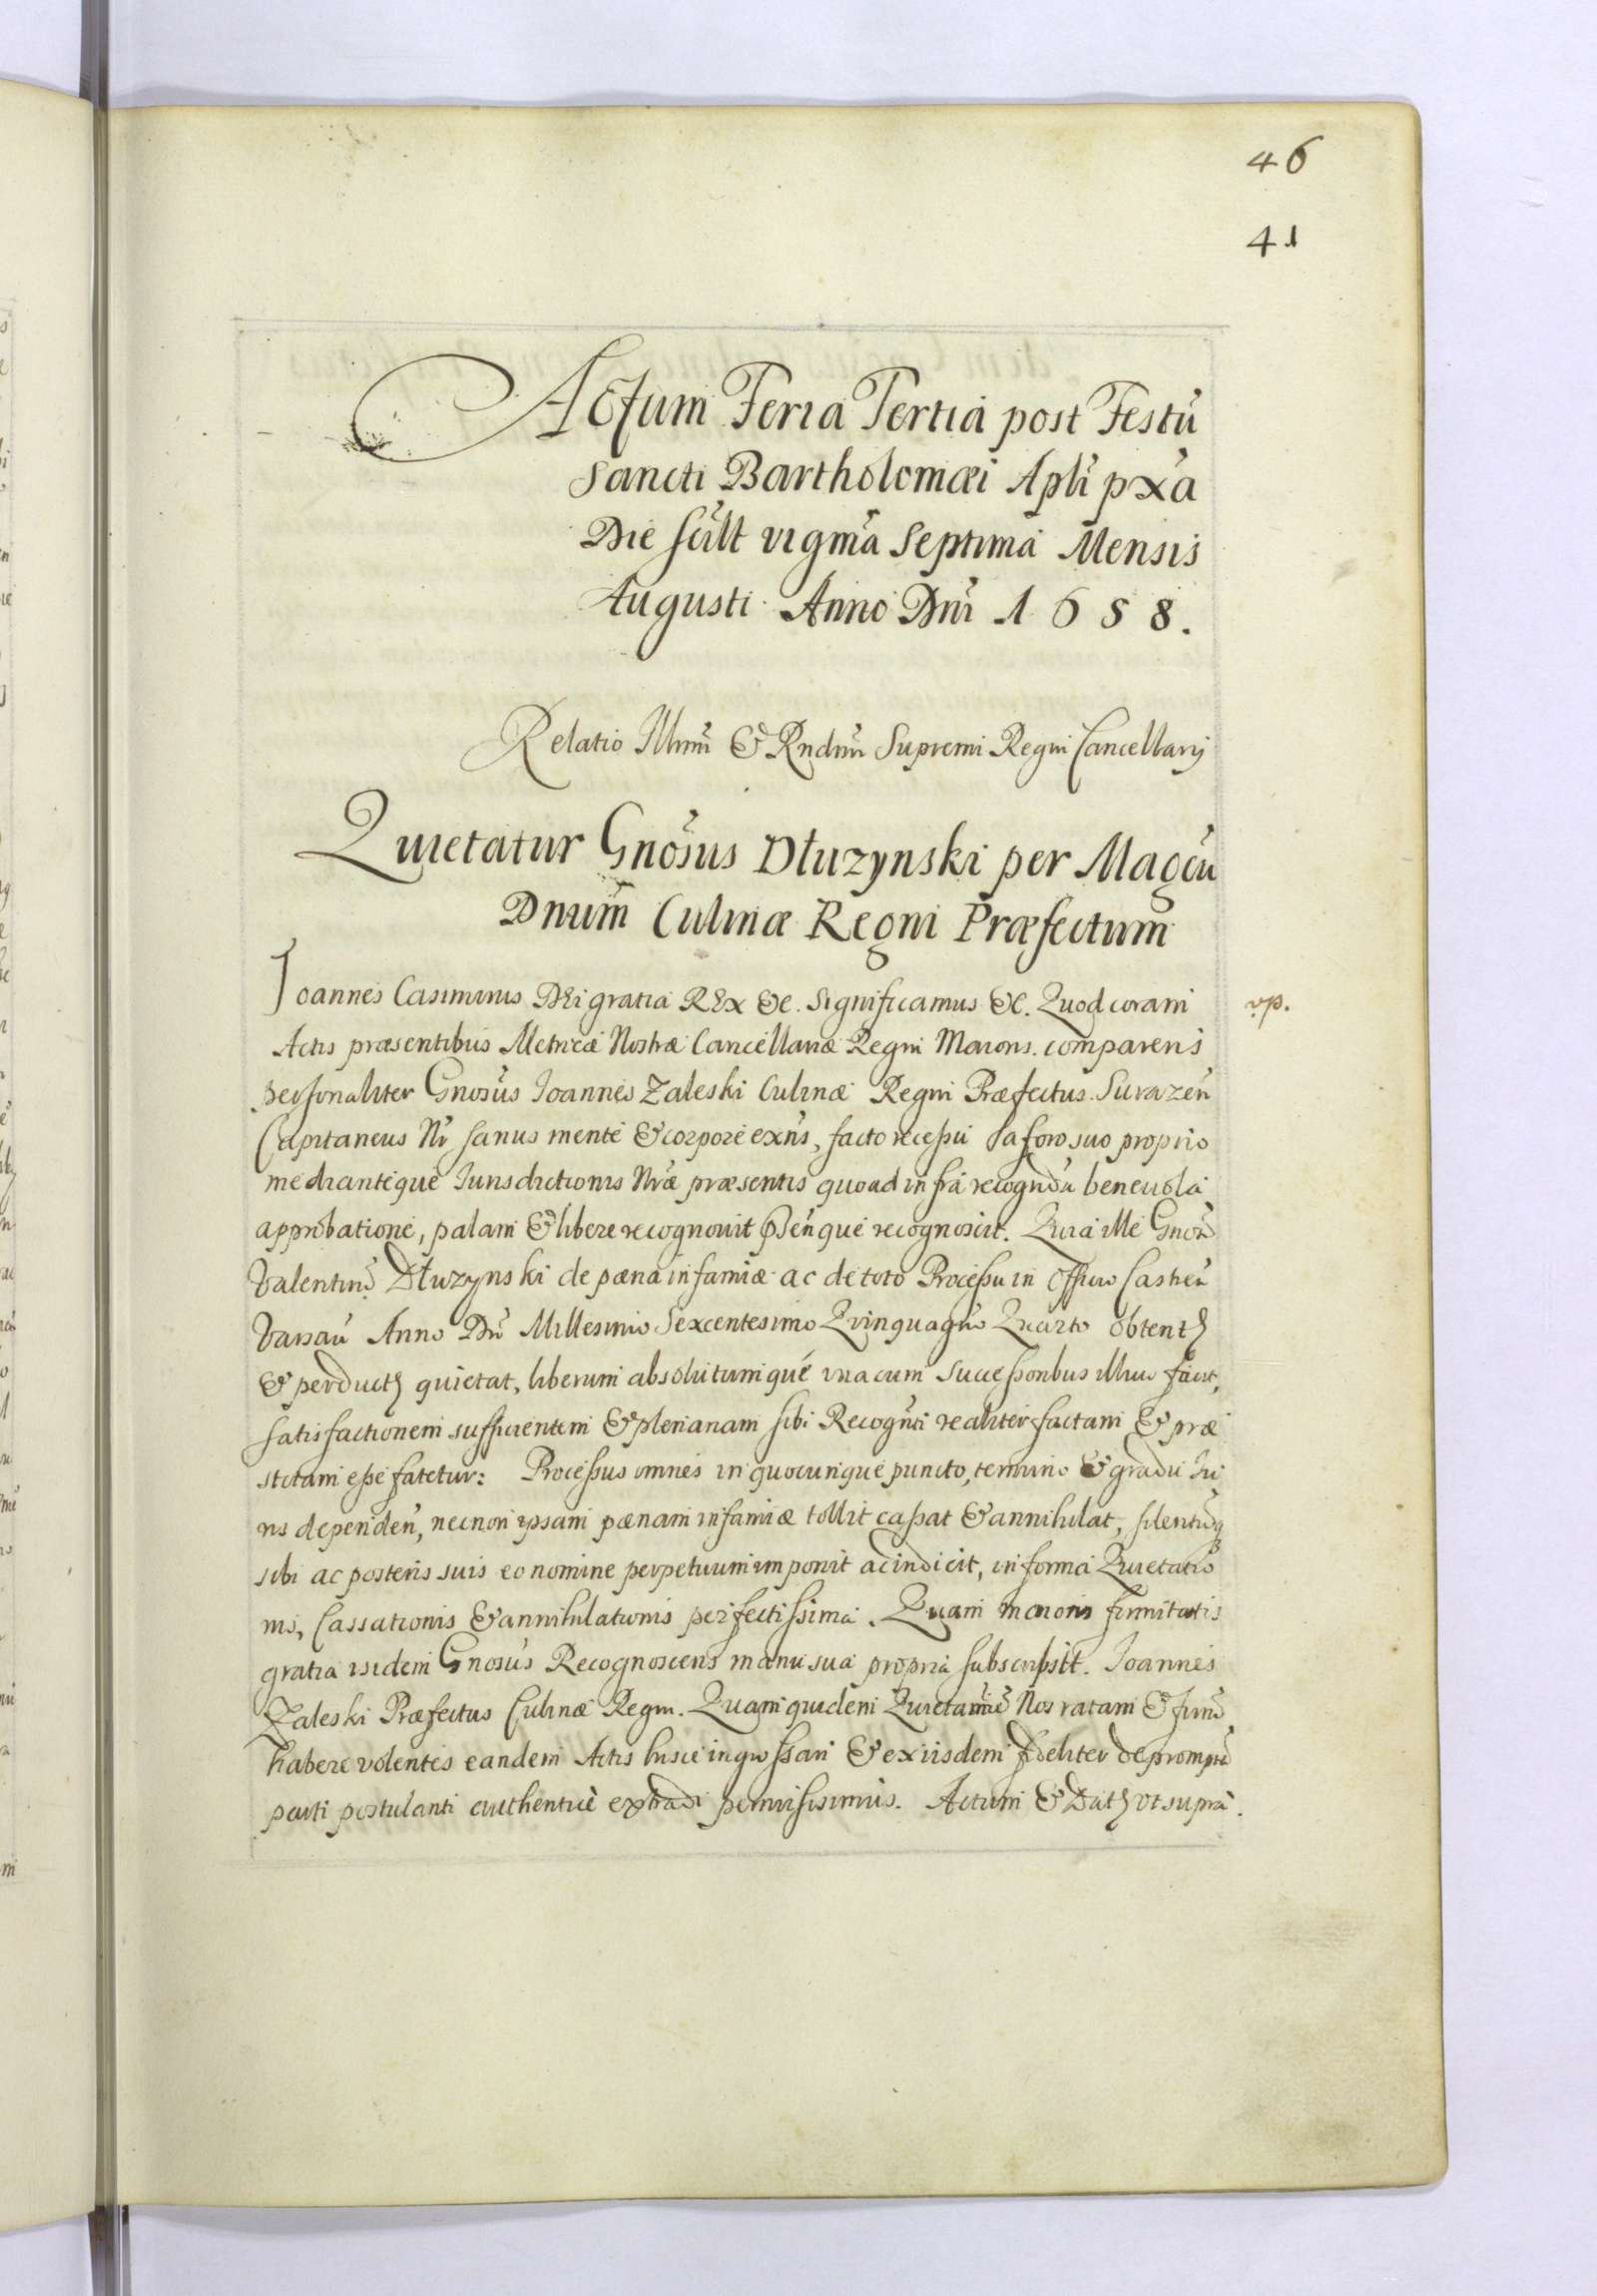 46
41
Actum Feria Tertia post Festũ
Sancti Bartholomæi Apli pxa
Die scilt vigma Septima Mensis
Augusti Anno Dni 1658.
Relatio Illmi & Rndmi Supremi Regni Cancellarij
Quietatur Gnosus Dłuzynski per Magcu
Dnum Culinæ Regni Præfectum
Joannes Casimirus DEi gratia REx &c. Significamus &c. Quod coram
vp.
Actis præsentibus Metricæ Nostræ Cancellariæ Regni Maioris comparens
personaliter Gnosus Joannes Zaleski Culinæ Regni Præfectus Surazen
Capitaneus Nr sanus mente & corpore exns, facto recessu a foro suo proprio
medianteque Iurisdictionis Nræ præsentis quoad infra recogndu beneuola
approbatione, palam & libere recognouit psenque recognoscit. Quia ille Gnosu
Valentinu Dłuzynski de pæna infamiæ ac de toto Processu in Officio Castren
Varsau Anno Dni Millesimo Sexcentesimo Quinquagno Quarto obtent
& perduct quietat, liberum absolutumque vna cum successoribus illius facit,
satisfactionem sufficientem & plenariam sibi Recognti realiter factam & præ
stitam esse fatetur: Processus omnes in quocunque puncto, termino & gradu Iu
ris dependen, necnon ipsam pænam infamiæ tollit cassat & annihilat, silentiuq
sibi ac posteris suis eo nomine perpetuum imponit ac indicit, in forma Quietatio
nis, Cassationis & annihilationis perfectissima. Quam maioris firmitatis
gratia isidem Gnosus Recognoscens manu sua propria subscripsit. Joannes
Zaleski Præfectus Culinæ Regni. Quam quidem Nos ratam & firmã
habere volentes eandem Actis hisce ingrossari & ex iisdem fideliter depromptã
parti postulanti authenticè extradi permisimus. Actum & Dat vt suprà.